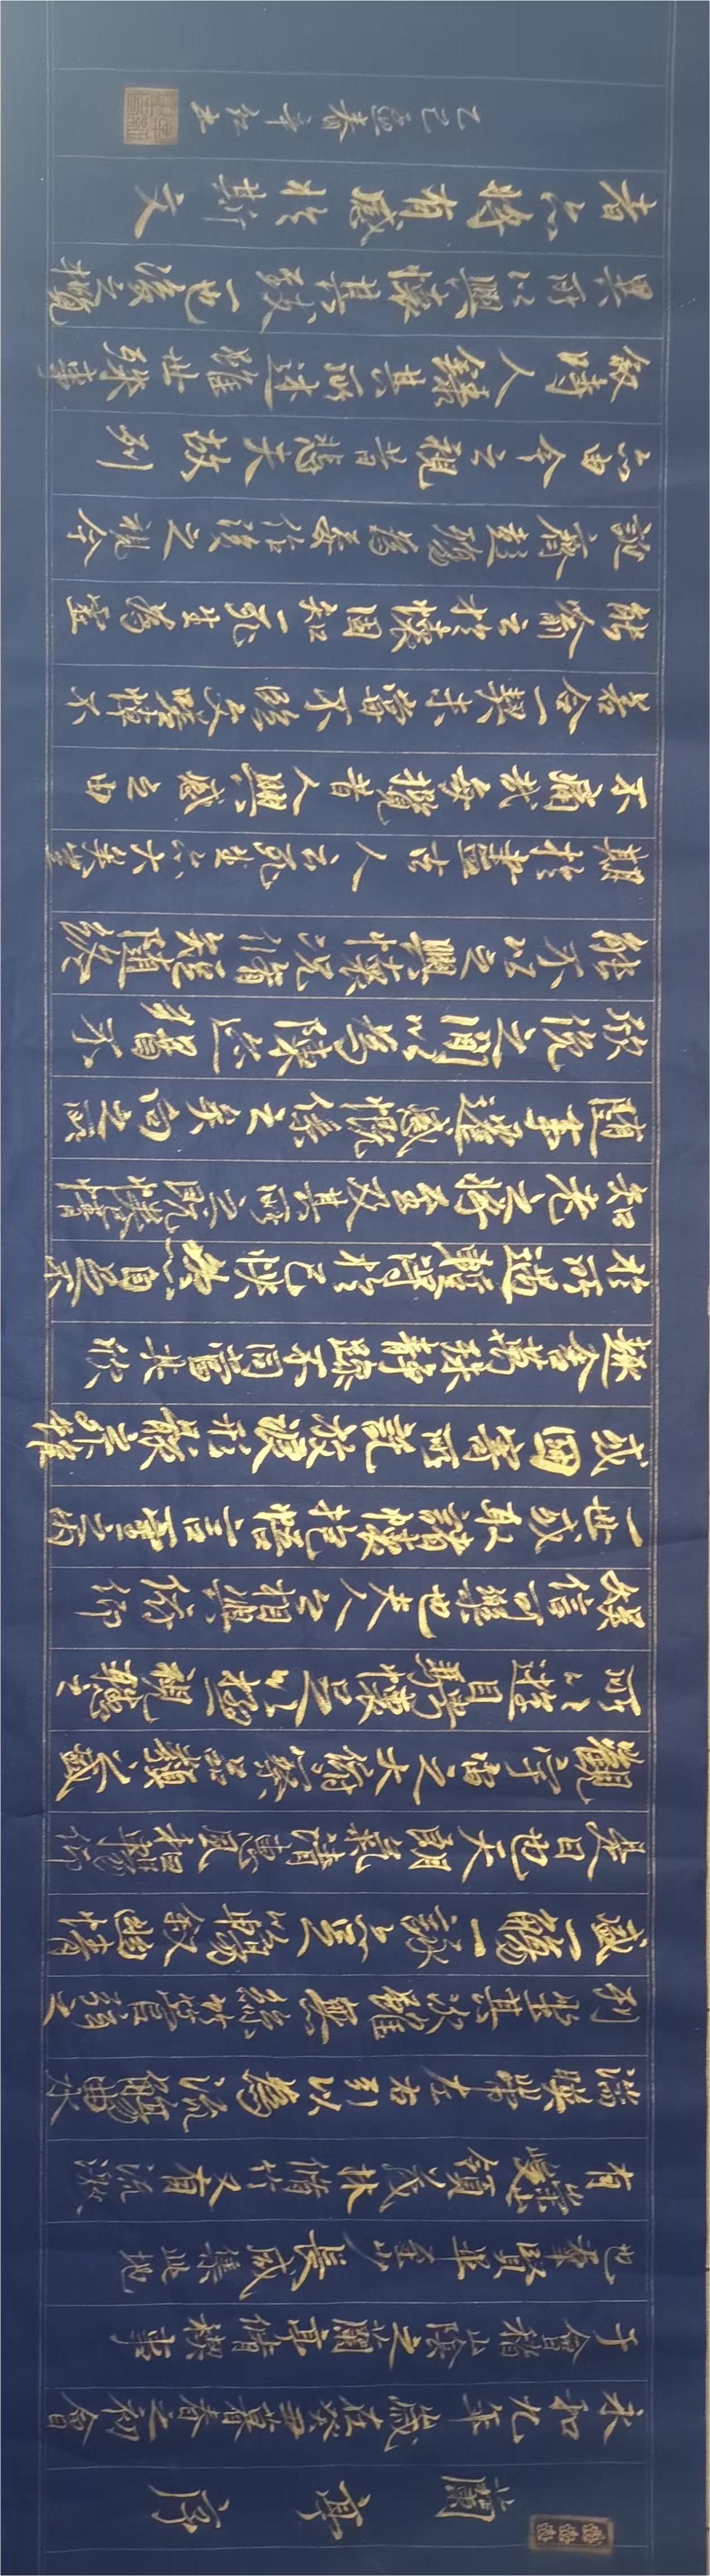 蘭亭序
永和九年歲在癸丑暮春之初會
于會稽山陰之蘭亭脩禊事
也羣賢畢至少長咸集此地
有崇山峻領茂林脩竹又有清流激
湍暎帶左右引以為流觴曲水
列坐其次雖無絲竹管弦之
盛一觴一詠亦足以暢敘幽情
是日也天朗氣清惠風和暢仰
觀宇宙之大俯察品類之盛
所以遊目騁懷足以極視聽之
娛信可樂也夫人之相與俯仰
一世或取諸懷抱悟言一室之內
或因寄所託放浪形骸之外雖
趣舍萬殊靜躁不同當其欣
於所遇暫得於己快然自足不
知老之將至及其所之既惓情
隨事遷感慨係之矣向之所
欣俛仰之間以為陳迹猶不
能不以之興懷況脩短隨化終
期於盡古人云死生亦大矣豈
不痛哉每攬昔人興感之由
若合一契未嘗不臨文嗟悼不
能喻之於懷固知一死生為虛
誕齊彭殤為妄作後之視今
亦由今之視昔悲夫故列
敘時人錄其所述雖世殊事
異所以興懷其致一也後之攬
者亦將有感於斯文
乙巳孟春